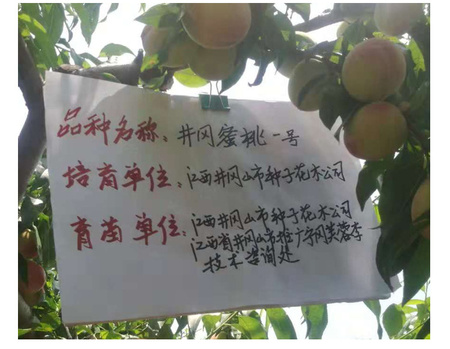 品种名称：井冈蜜桃一号
培育单位：江西井冈山市种子花木公司
育苗单位：江西井冈山市种子花木公司
江西省井冈山市推广井冈芙蓉李
技术咨询处